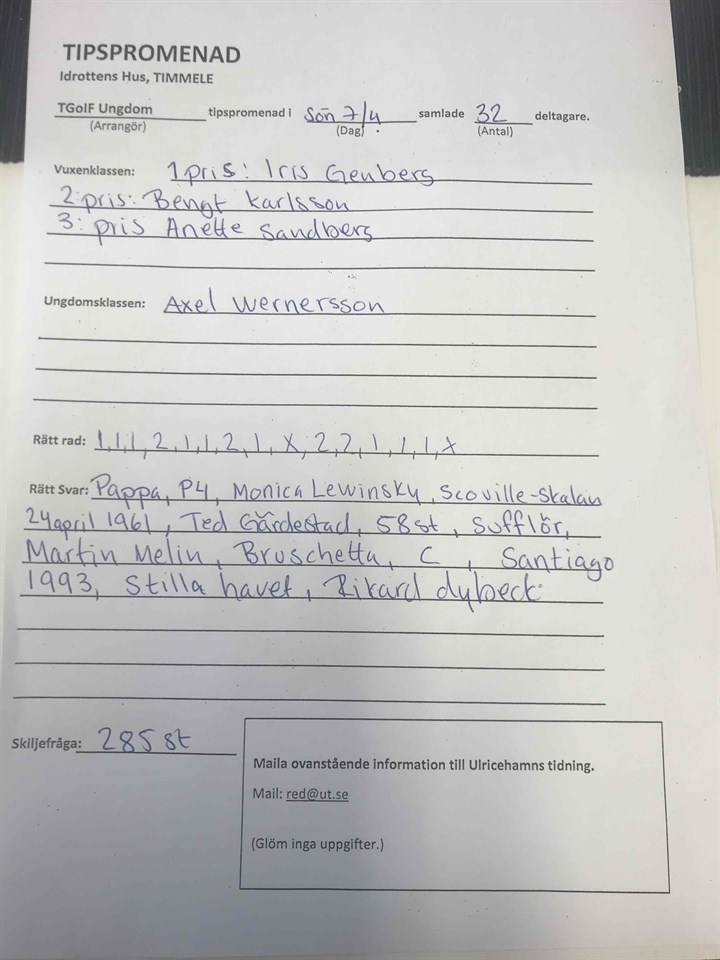 TIPSPROMENAD
Idrottens Hus, TIMMELE
TGoIF Ungdom tipspromenad i Sön 7/4 samlade 32 deltagare.
(Arrangör) (Dag) (Antal)
Vuxenklassen: 1 pris: Iris Genberg
2: pris: Bengt Karlsson
3: pris Anette Sandberg
Ungdomsklassen: Axel Wernersson
Rätt rad: 1,1,1,2,1,1,2,1,X,2,2,1,1,1,X
Rätt Svar: Pappa, P4, Monica Lewinsky, Scoville-Skalan
24 april 1961, Ted Gärdestad, 58 st, Sufflör,
Martin Melin, Bruschetta, C, Santiago
1993, Stilla havet, Rikard dybeck
Skiljefråga: 285 st
Maila ovanstående information till Ulricehamns tidning.
Mail: red@ut.se
(Glöm inga uppgifter.)